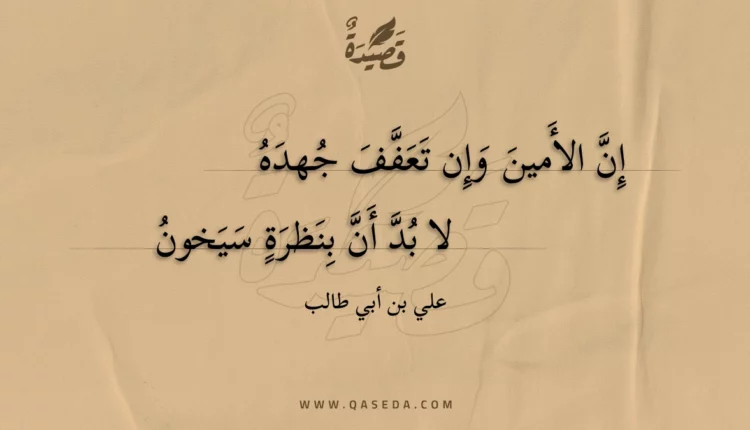 قَصِيدَةٌ
إِنَّ الأَمينَ وَإِن تَعَفَّفَ جُهدَهُ
لا بُدَّ أَنَّ بِنَظرَةٍ سَيَخونُ
علي بن أبي طالب
WWW.QASEDA.COM